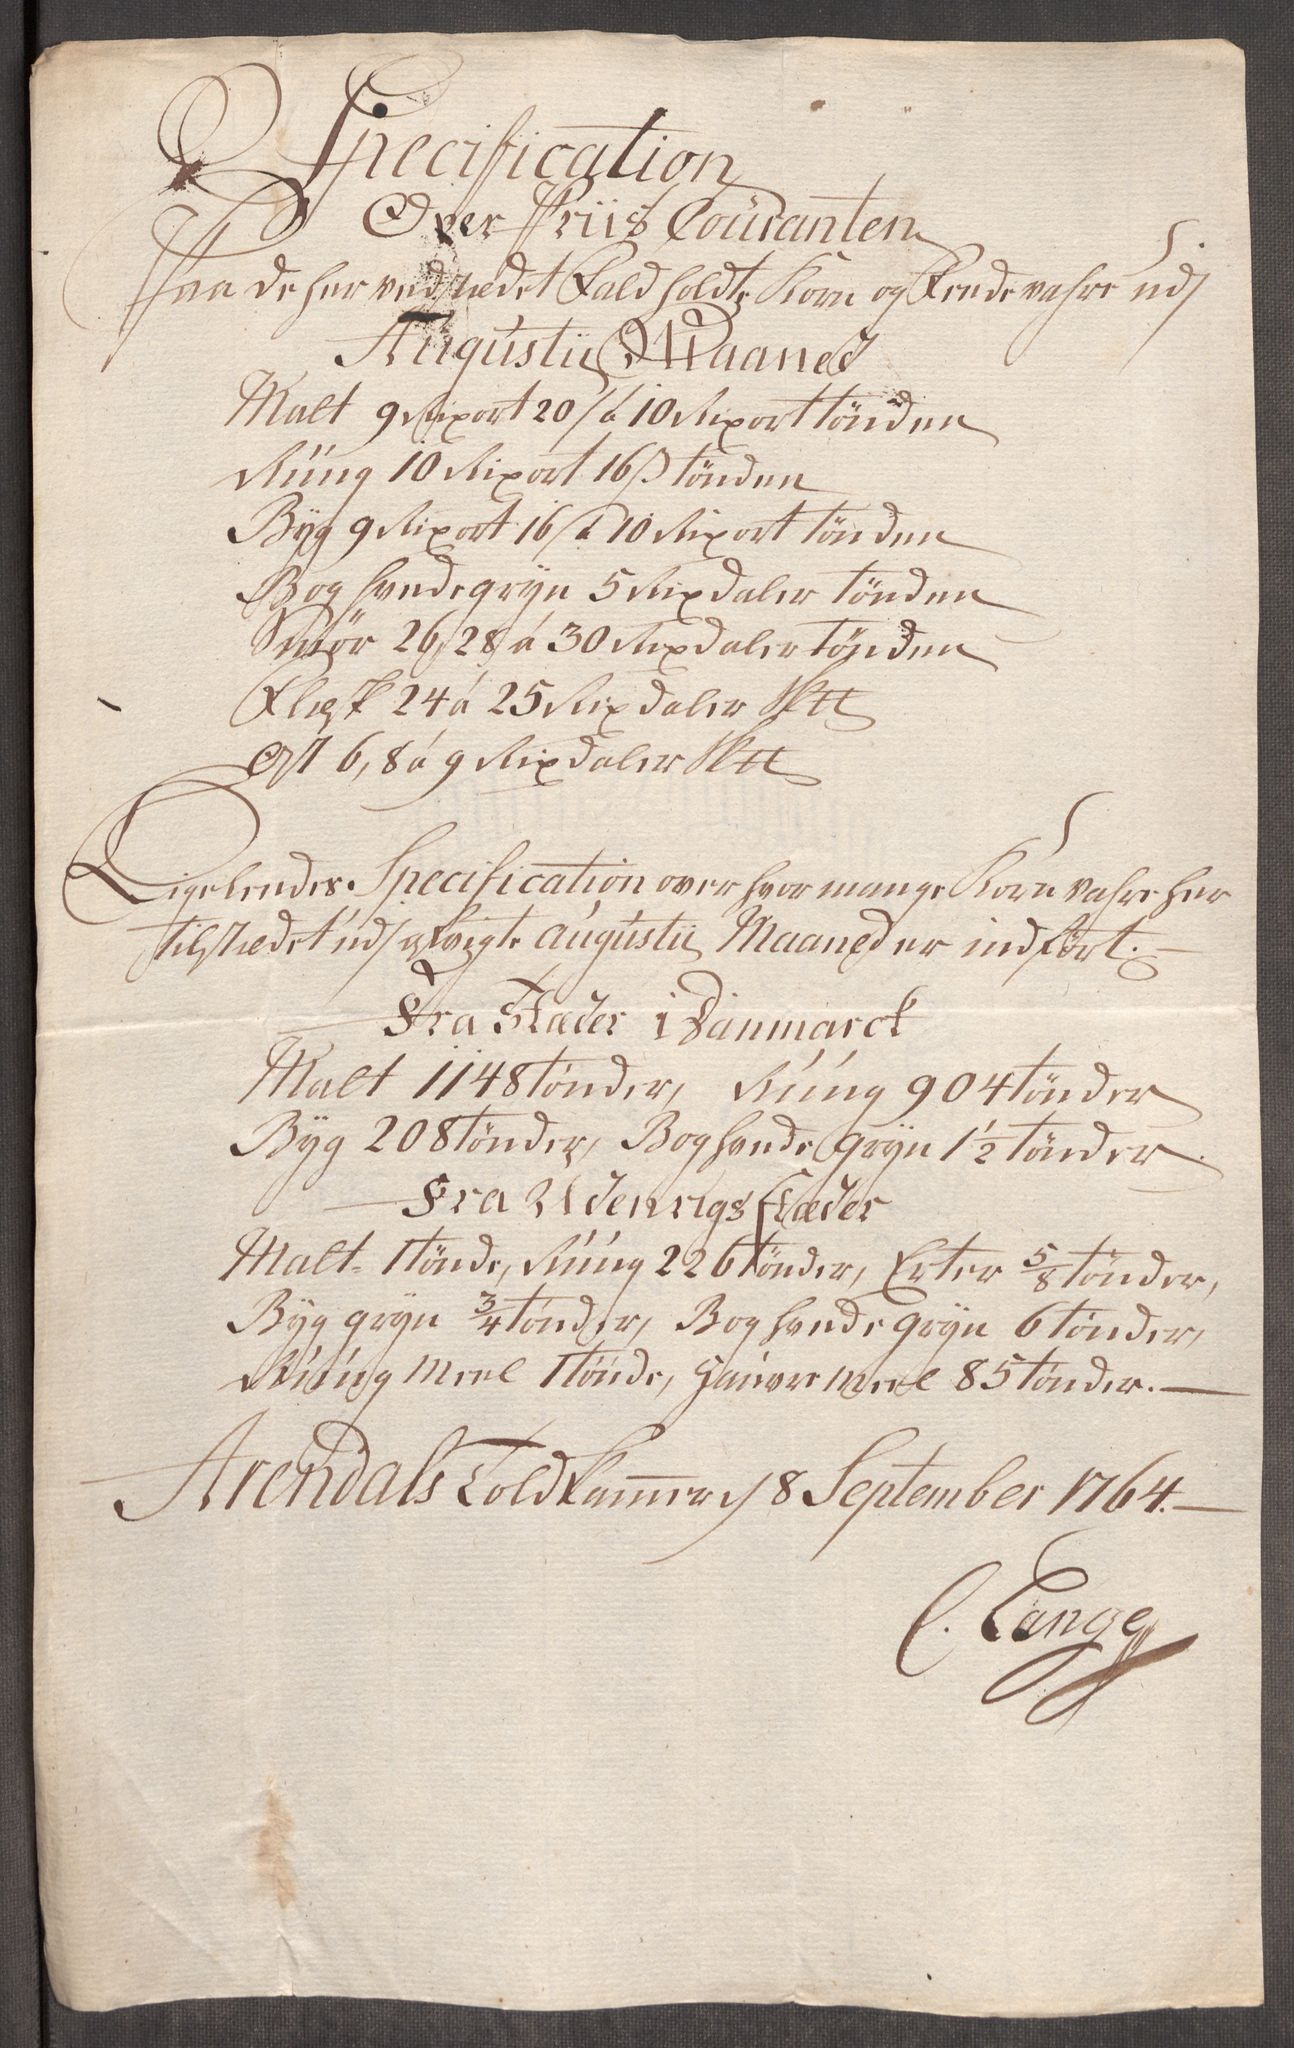 Specification
Over Priis Couranten
Paa de her ved stædet Fald holdte Korn og Fende vahre udj
Augustii Maaned
Malt 9 Rixort 20 s á 10 Rixort tönden
Rüng 10 Rixort 16 s tönden
Byg 9 Rixort 16 s á 10 Rixort tönden
Boghvedegryn 5 Rixdaler tönden
Smör 26, 28, á 30 Rixdaler tönden
Flesk 24 á 25 Rixdaler
Ost 6, 8 á 9 Rixdaler
Ligeledes Specification over hvor mange Korn vahre her
til stædet udj Augustii Maaned er indfört.
Fra Stæder i Danmarck
Malt 1148 tönder, Rüng 904 tönder
Byg 208 tönder, Boghvede gryn 1½ tönder
Fra Udenrigs stæder
Malt 1 tönde, Rüng 226 tönder, Erter 5/8 tönder,
Byg gryn 3/4 tönder, Boghvede gryn 6 tönder,
Rüng Meel 1 tönde, Haure meel 85 tönder.
Arendals Toldkammer 8 September 1764.
C. Lange